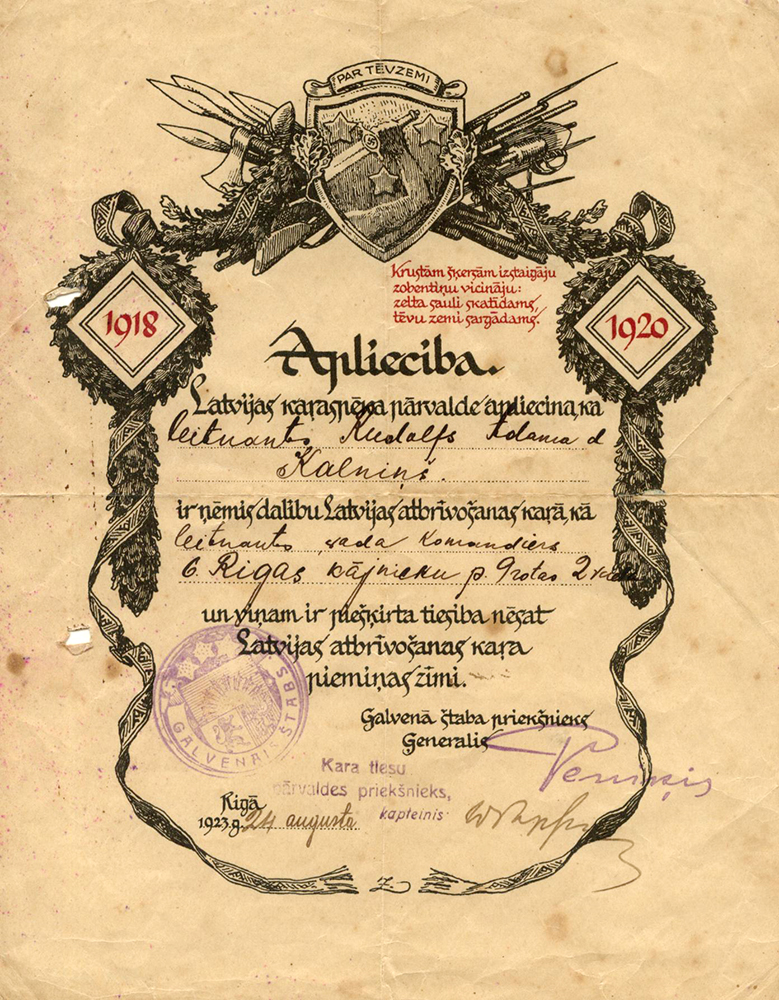 PAR TĒVZEMI
1918
1920
Krustām šķersām izstaigāju
zobentiņu vicināju:
zelta sauli skatīdams,
tēvu zemi sargādams.
Apliecība.
Latvijas karaspēka pārvalde apliecina, ka
leitnants Rudolfs Adama d
Kalniņš.
ir ņēmis dalību Latvijas atbrīvošanas karā, kā
leitnants, vada komandieris
6. Rigas kājnieku p. rotas
un viņam ir piešķirta tiesiba nēsat
Latvijas atbrīvošanas kara
piemiņas zīmi.
GALVENAIS ŠTABS
Galvenā štaba priekšnieks
Ģenerālis
Kara tiesu
pārvaldes priekšnieks,
kapteinis
Rīgā
1923.g. 24 augusta